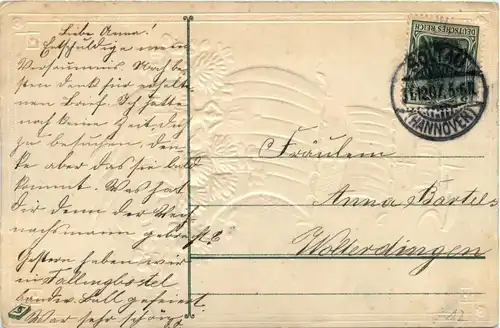 Liebe Anna!
Entschuldige mein
Versäumnis. Noch be-
sten Dank für erhalte-
nen Brief. Ich hatte
noch keine Zeit, dich
zu besuchen, den-
ke aber das sie bald
kommt. Was hat
Dir denn der Weih-
nachsmann gebracht?
Gestern haben wir
in Fallingbostel
Ball gefeiert.
War sehr schön
DEUTSCHES REICH
(HANNOVER)
Fräulein
Anna Bartels
Wolterdingen